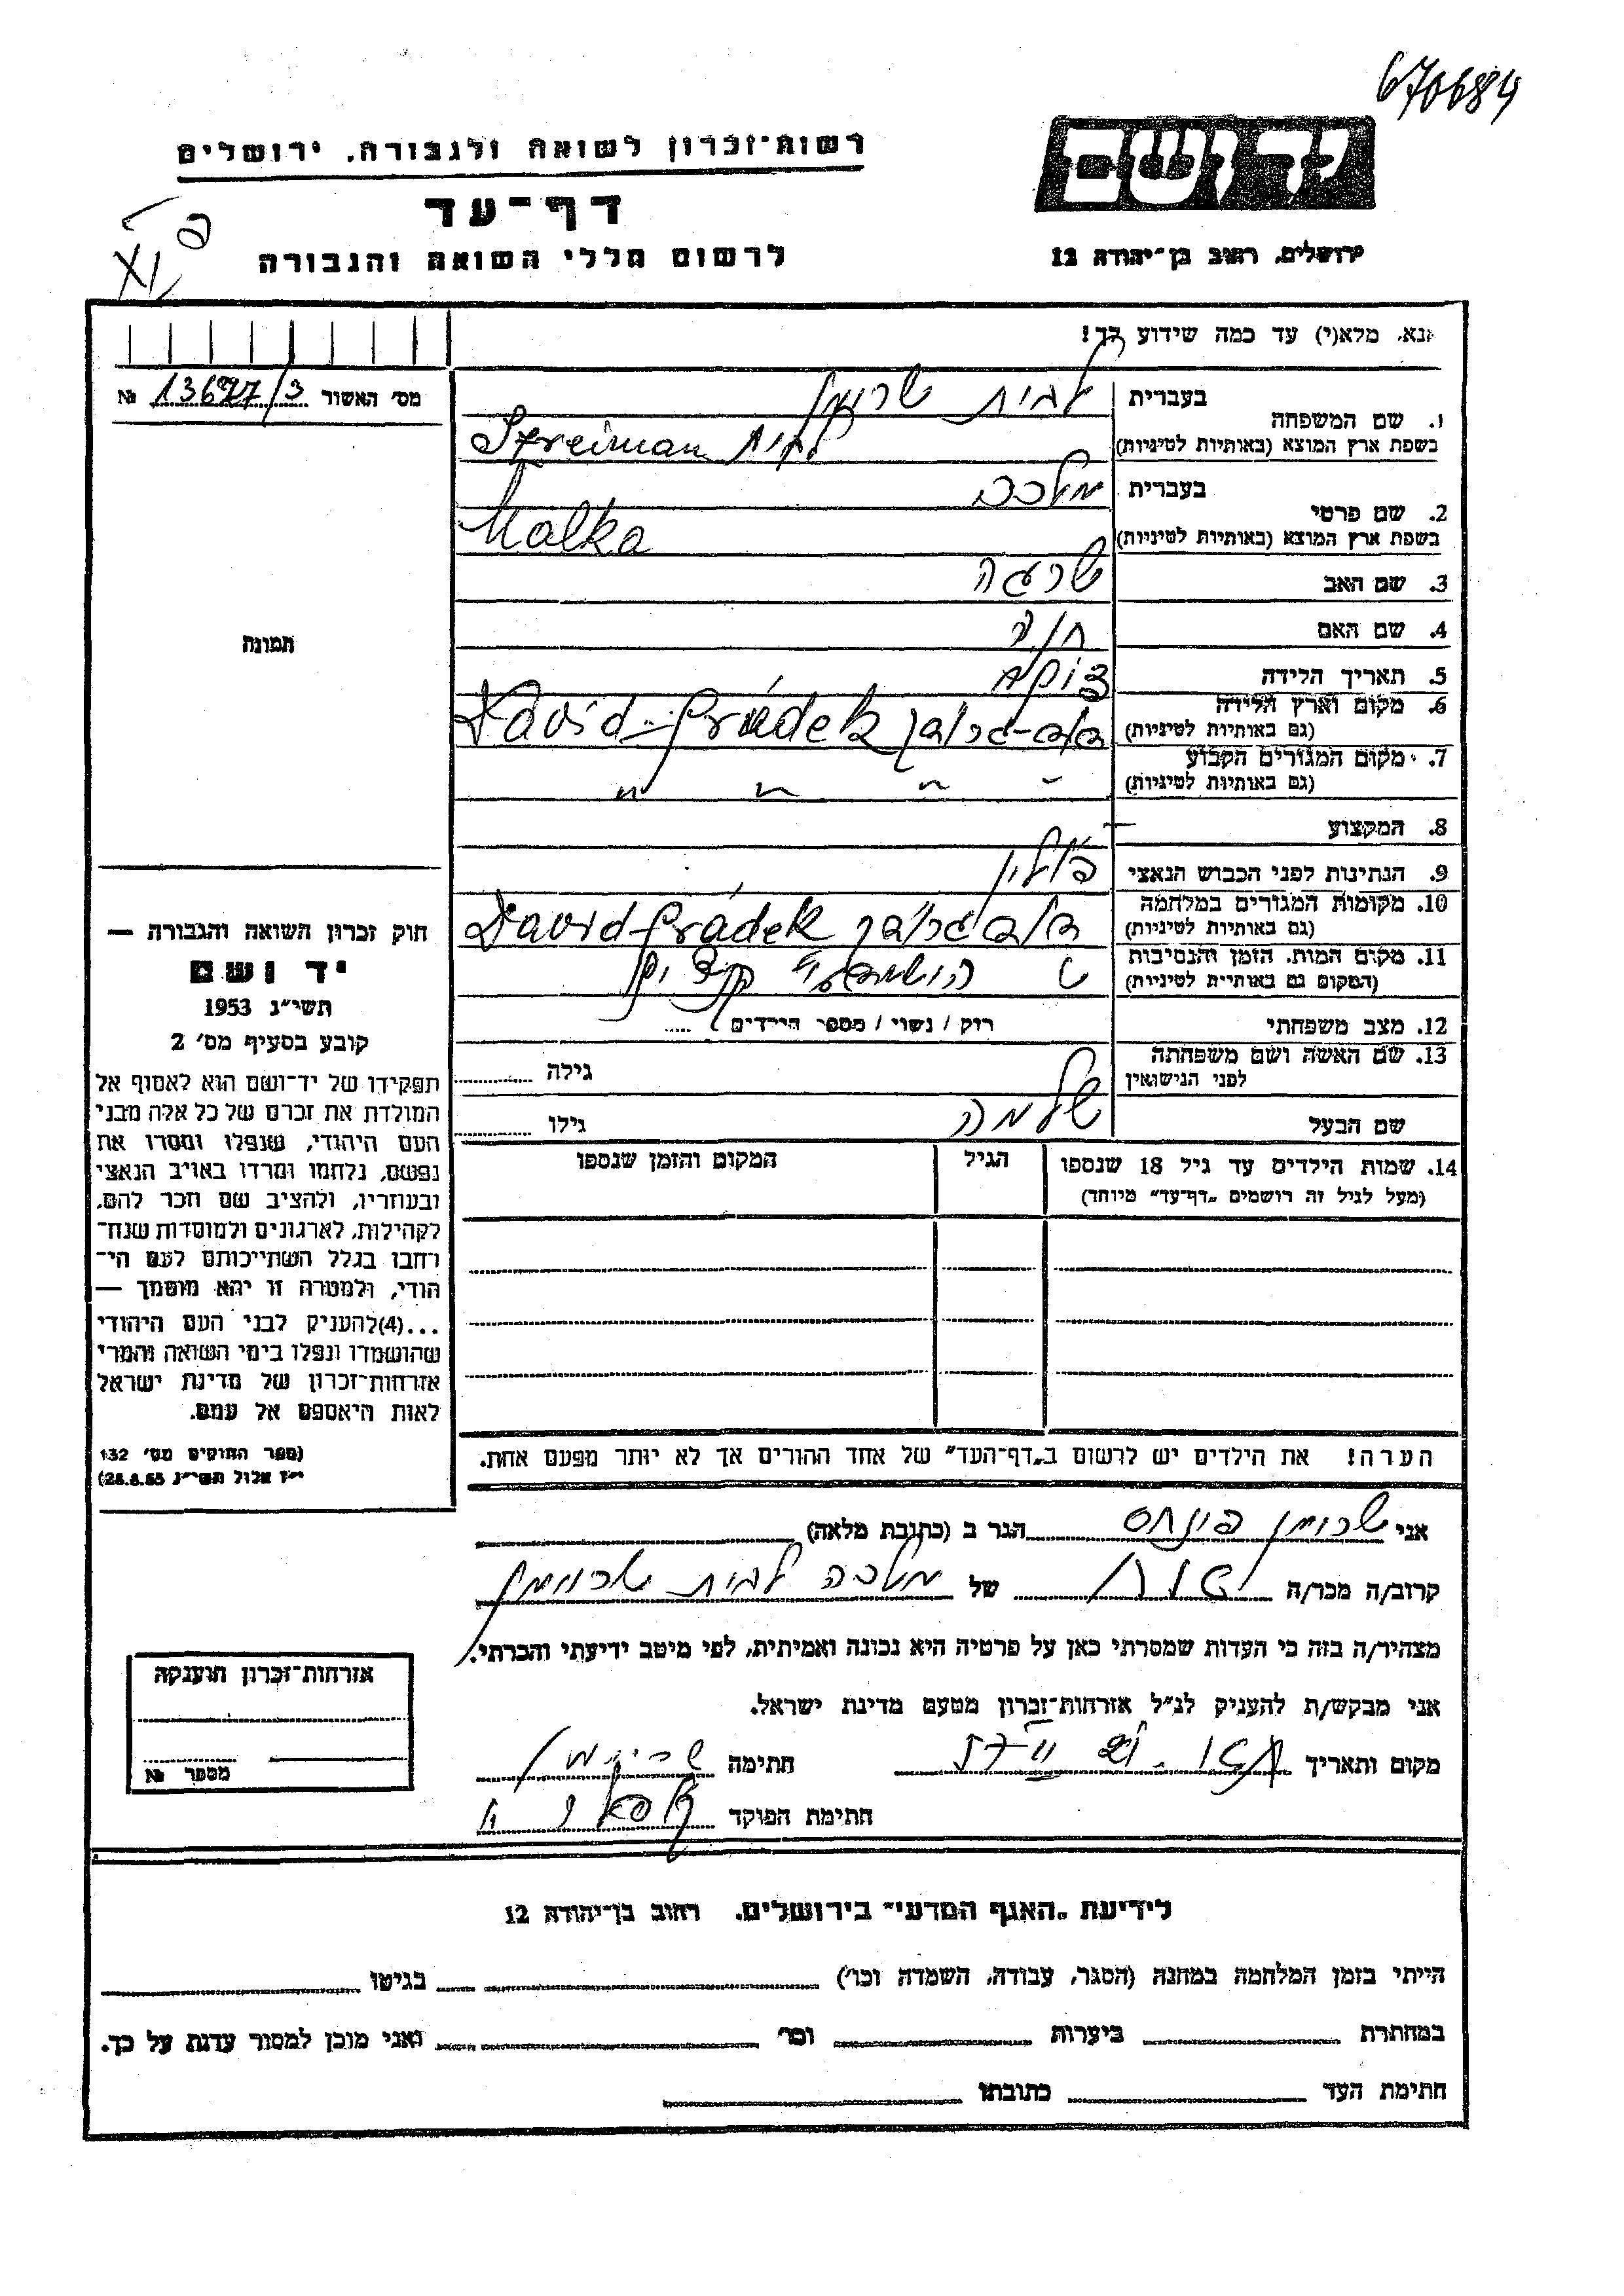 670684
יד ושם
רשות־זכרון לשואה ולגבורה. ירושלים
דף־עד
לרשום חללי השואה והגבורה
ירושלים, רחוב בן־יהודה 12
אנא, מלא(י) עד כמה שידוע לך!
מס׳ האשור № 13677/3
1. שם המשפחה
בעברית
בשפת ארץ המוצא (באותיות לטיניות) Streiman לבית
2. שם פרטי
בעברית מלכה
בשפת ארץ המוצא (באותיות לטיניות) Malka
3. שם האב שרגה
4. שם האם
5. תאריך הלידה
6. מקום וארץ הלידה
(גם באותיות לטיניות) David-Gródek
7. מקום המגורים הקבוע
(גם באותיות לטיניות) " " " "
8. המקצוע —
9. הנתינות לפני הכבוש הנאצי פולין
10. מקומות המגורים במלחמה
(גם באותיות לטיניות) David-Gródek
11. מקום המות, הזמן והנסיבות
(המקום גם באותיות לטיניות)
12. מצב משפחתי רוק / נשוי / מספר הילדים .....
13. שם האשה ושם משפחתה
לפני הנישואין
גילה
שם הבעל שלמה גילו
14. שמות הילדים עד גיל 18 שנספו
(מעל לגיל זה רושמים „דף־עד״ מיוחד)
הגיל
המקום והזמן שנספו
הערה! את הילדים יש לרשום ב„דף־העד״ של אחד ההורים אך לא יותר מפעם אחת.
תמונה
חוק זכרון השואה והגבורה —
יד ושם
תשי״ג 1953
קובע בסעיף מס׳ 2
תפקידו של יד־ושם הוא לאסוף אל
המולדת את זכרם של כל אלה מבני
העם היהודי, שנפלו ומסרו את
נפשם, נלחמו ומרדו באויב הנאצי
ובעוזריו, ולהציב שם וזכר להם,
לקהילות, לארגונים ולמוסדות שנח־
רחבו בגלל השתייכותם לעם הי־
הודי, ולמטרה זו יהא מוסמך —
...(4)להעניק לבני העם היהודי
שהושמדו ונפלו בימי השואה והמרי
אזרחות־זכרון של מדינת ישראל
לאות היאספם אל עמם.
(ספר החוקים מס׳ 132
י״ז אלול תשי״ג 28.8.53)
אני שטרימן פנחס הגר ב (כתובת מלאה)
קרוב/ה מכר/ה של מלכה לבית
מצהיר/ה בזה כי העדות שמסרתי כאן על פרטיה היא נכונה ואמיתית, לפי מיטב ידיעתי והכרתי.
אני מבקש/ת להעניק לנ״ל אזרחות־זכרון מטעם מדינת ישראל.
מקום ותאריך חתימה
חתימת הפוקד
אזרחות־זכרון הוענקה
מספר №
לידיעת „האגף המדעי״ בירושלים. רחוב בן־יהודה 12
הייתי בזמן המלחמה במחנה (הסגר, עבודה, השמדה וכו׳) בגיטו
במחתרת ביערות וכו׳ ואני מוכן למסור עדות על כך.
חתימת העד כתובתו